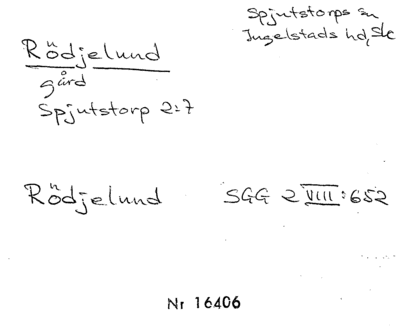 Spjutstorps sn
Ingelstads hd, Sk
Rödjelund
gård
Spjutstorp 2:7
Rödjelund SGG 2 VIII:652
Nr 16406